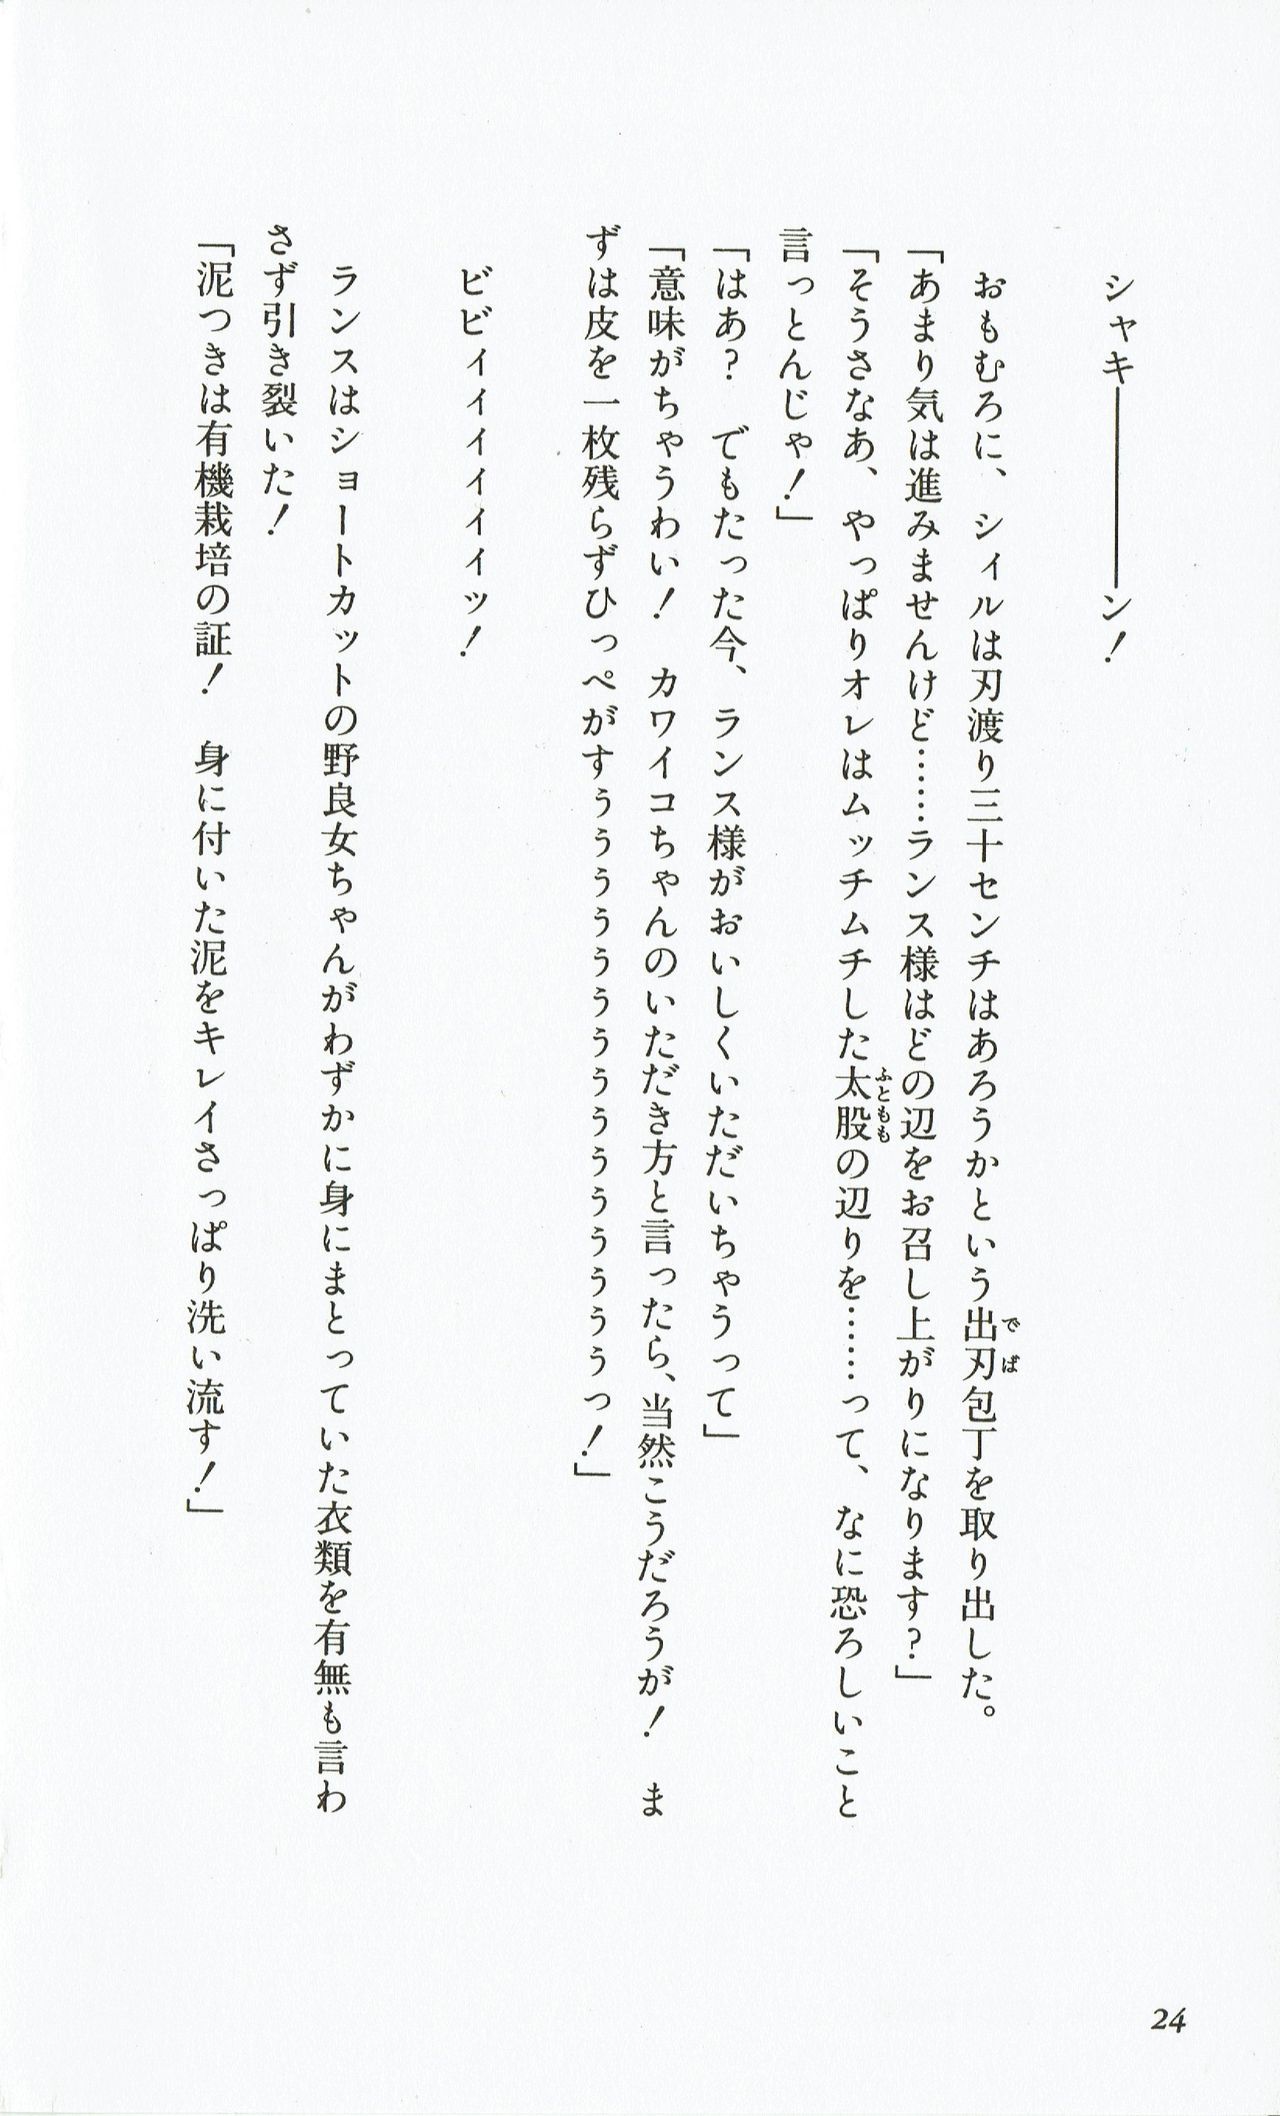 シャキ―――――ン！
おもむろに、シィルは刃渡り三十センチはあろうかという出刃包丁を取り出した。
「あまり気は進みませんけど……ランス様はどの辺をお召し上がりになります？」
「そうさなあ、やっぱりオレはムッチムチした太股の辺りを……って、なに恐ろしいこと
言っとんじゃ！」
「はあ？　でもたった今、ランス様がおいしくいただいちゃうって」
「意味がちゃうわい！　カワイコちゃんのいただき方と言ったら、当然こうだろうが！　ま
ずは皮を一枚残らずひっぺがすぅぅぅぅぅぅぅぅぅぅぅぅぅぅぅっ！」
ビビィィィィィィッ！
ランスはショートカットの野良女ちゃんがわずかに身にまとっていた衣類を有無も言わ
さず引き裂いた！
「泥つきは有機栽培の証！　身に付いた泥をキレイさっぱり洗い流す！」
24